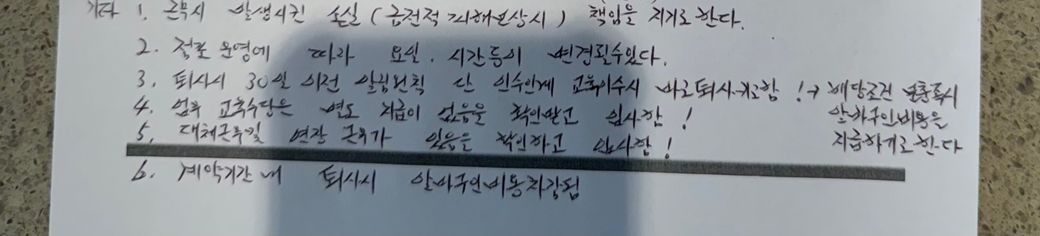 기타 1. 근무시 발생시킨 손실 (금전적 피해보상시) 책임을 지기로 한다.
2. 점포 운영에 따라 요일. 시간등이 변경될수있다.
3. 퇴사시 30일 이전 알림원칙 단 인수인계 교육이수시 바로퇴사가능함 ! → 해당조건 불충족시
알바구인비용을
지급하기로한다
4. 업무 교육수당은 별도 지급이 없음을 확인받고 입사함 !
5. 대체근무및 연장 근무가 있음을 확인하고 입사함 !
6. 계약기간 내 퇴사시 알바구인비용차감됨